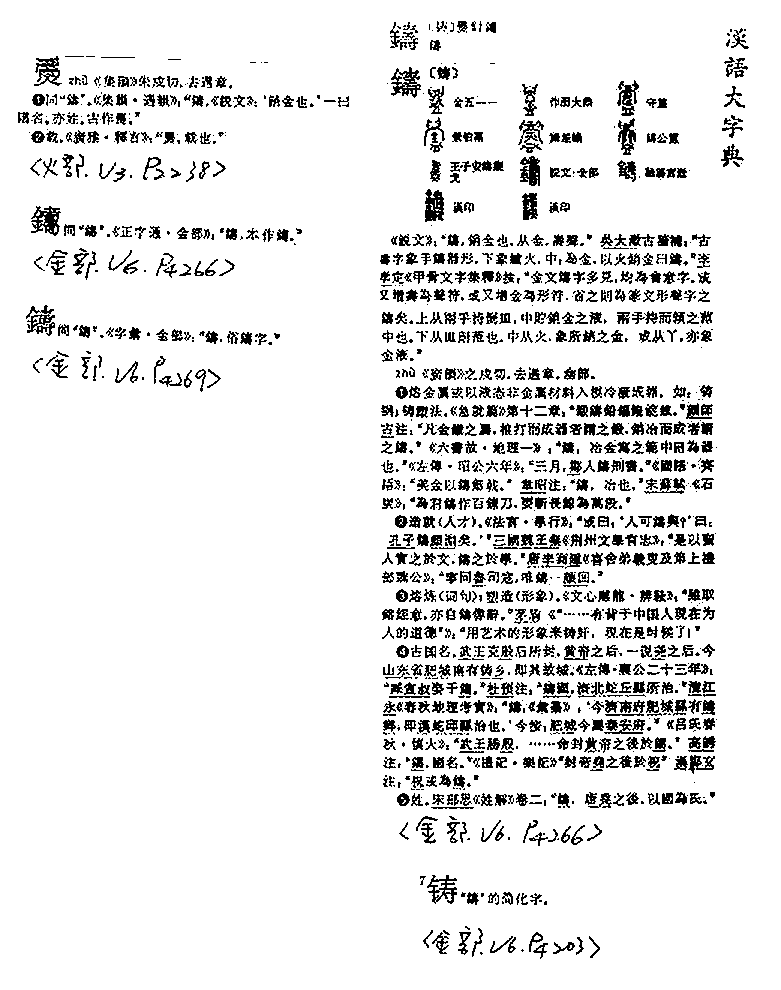 漢語大字典
zhù《集韻》朱戍切,去遇章。
❶同“鑄”。《集韻·遇韻》:“鑄,《説文》:‘銷金也。’一曰
國名,亦姓。古作㷅。”
❷載。《廣雅·釋言》:“㷅,載也。”
<火部. V3. P2238>
同“鑄”。《正字通·金部》:“鑄,本作鑄。”
<金部. V6. P4266>
同“鑄”。《字彙·金部》:“鑄,俗鑄字。”
<金部. V6. P4269>
鑄
鑄 〔鑄〕
金五一一 作田大鼎 守簋
榮伯鬲 鑄公簠
説文·金部
漢印 漢印
《説文》:“鑄,銷金也。从金,壽聲。”吴大澂古籀補:“古
鑄字象手鑄器形,下象爐火,中,為金,以火銷金曰鑄。”李
孝定《甲骨文字集釋》按:“金文鑄字多見,均為會意字。或
又增壽為聲符,或又增金為形符,省之則為篆文形聲字之
鑄矣。上从兩手持倒皿,中貯銷金之液,兩手持而傾之范
中也。下从皿則范也。中从火,象所銷之金,或从丫,亦象
金液。”
zhù《廣韻》之戍切,去遇章。幽部。
❶熔金屬或以液态非金屬材料入模冷凝成器。如:铸
鋼;铸塑法。《急就篇》第十二章:“鍛鑄鉛錫鐙錠鐎。”顔師
古注:“凡金鐵之屬,椎打而成器者謂之鍛,銷冶而成者謂
之鑄。”《六書故·地理一》:“鑄,冶金寫之範中因為器
也。”《左傳·昭公六年》:“三月,鄭人鑄刑書。”《國語·齊
語》:“美金以鑄劍戟。”韋昭注:“鑄,冶也。”宋蘇軾《石
炭》:“為君鑄作百鍊刀,要斬長鯨為萬段。”
❷造就(人才)。《法言·學行》:“或曰:‘人可鑄與?’曰:
孔子鑄顔淵矣。’”三國魏王粲《荆州文學官志》:“是以聖
人實之於文,鑄之於學。”
部
❸熔炼(词句);塑造(形象)。《文心雕龍·辨騷》:“雖取
鎔經意,亦自鑄偉辭。”茅盾《“……有背于中国人現在为
人的道德”》:“用艺术的形象来铸奸,現在是时候了!”
❹古国名。武王克殷后所封,黄帝之后,一説尧之后。今
山东省肥城南有铸乡,即其故城。《左傳·襄公二十三年》:
“臧宣叔娶于鑄。”杜預注:“鑄國,濟北蛇丘縣所治。”清江
永《春秋地理考實》:“鑄,《彙纂》:‘今濟南府肥城縣有鑄
鄉,即漢蛇邱縣治也。’今按:肥城今屬泰安府。”《吕氏春
秋·慎大》:“武王勝殷,……命封黄帝之後於鑄。”高誘
注:“鑄,國名。”《禮記·樂記》“封帝堯之後於祝”漢鄭玄
注:“祝或為鑄。”
❺姓。宋邵思《姓解》卷二:“鑄,唐堯之後,以國為氏。”
<金部. V6. P4266>
7 铸 “鑄”的简化字。
<金部. V6. P4203>